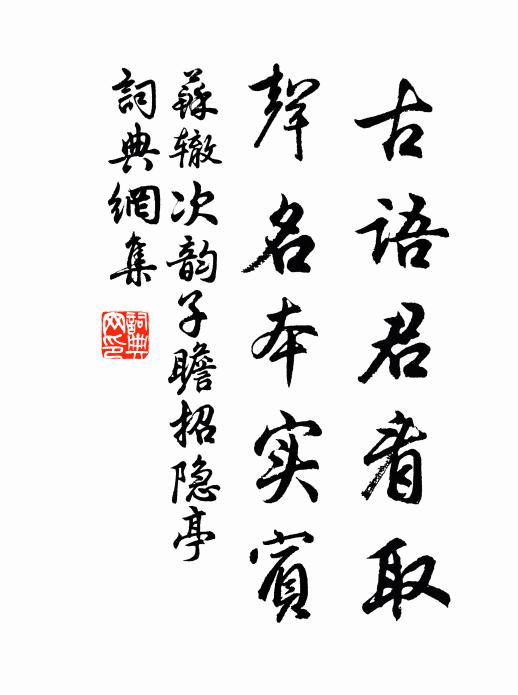 古语君看取
声名本实宾
蘇辙次韵子瞻招隐亭
詞典網集
詞典网印